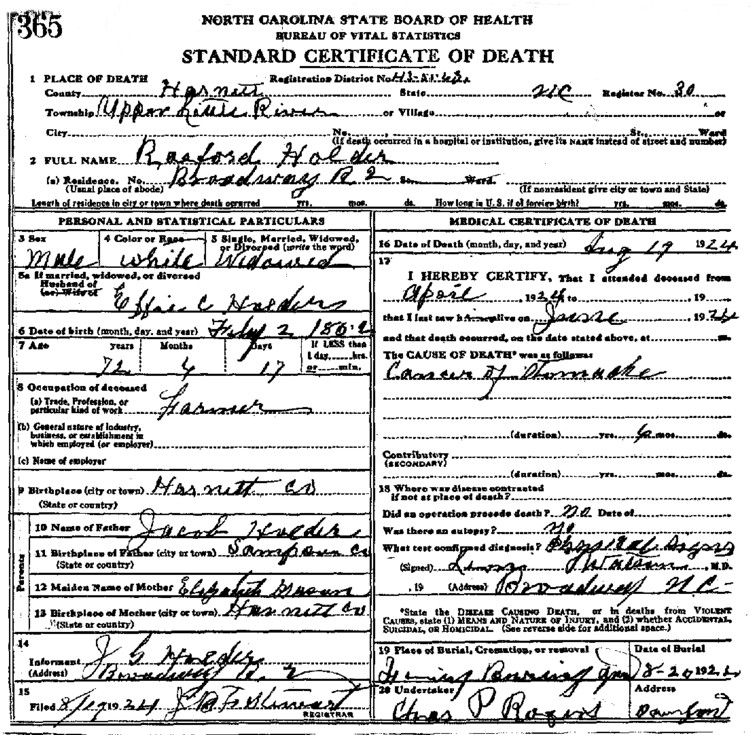 365
NORTH CAROLINA STATE BOARD OF HEALTH
BUREAU OF VITAL STATISTICS
STANDARD CERTIFICATE OF DEATH
1 PLACE OF DEATH Registration District No.
County Harnett State NC Register No. 30
Township Upper Little River or Village or
City No. St., Ward
(If death occurred in a hospital or institution, give its NAME instead of street and number)
2 FULL NAME Raeford Holder
(a) Residence. No. Broadway R 2 St. Ward
(Usual place of abode) (If nonresident give city or town and State)
Length of residence in city or town where death occurred yrs. mos. ds. How long in U.S. if of foreign birth? yrs. mos. ds.
PERSONAL AND STATISTICAL PARTICULARS
3 Sex 4 Color or Race 5 Single, Married, Widowed, or Divorced (write the word)
Male white Widowed
5a If married, widowed, or divorced
Husband of
(or) Wife of Effie C Holder
6 Date of birth (month, day, and year) 2
7 Age years Months Days If LESS than
1 day, hrs.
72 4 17 or min.
8 Occupation of deceased
(a) Trade, Profession, or
particular kind of work Farmer
(b) General nature of industry,
business, or establishment in
which employed (or employer)
(c) Name of employer
9 Birthplace (city or town) Harnett Co
(State or country)
Parents
10 Name of Father Jacob Holder
11 Birthplace of Father (city or town) Sampson Co
(State or country)
12 Maiden Name of Mother Elizabeth
13 Birthplace of Mother (city or town) Harnett Co
(State or country)
14
Informant J G Holder
(Address) Broadway R. 2
15
Filed 8/19 1924 Stewart
REGISTRAR
MEDICAL CERTIFICATE OF DEATH
16 Date of Death (month, day, and year) Aug 19 1924
17
I HEREBY CERTIFY, That I attended deceased from
April 1924 to 19
that I last saw him alive on June 1924
and that death occurred, on the date stated above, at m.
The CAUSE OF DEATH* was as follows:
Cancer of Stomache
(duration) yrs. 6 mos. ds.
Contributory
(SECONDARY)
(duration) yrs. mos. ds.
18 Where was disease contracted
if not at place of death?
Did an operation precede death? no Date of
Was there an autopsy? no
What test confirmed diagnosis? Physical
(Signed) M.D.
, 19 (Address) Broadway N.C.
*State the DISEASE CAUSING DEATH, or in deaths from VIOLENT
CAUSES, state (1) MEANS AND NATURE OF INJURY, and (2) whether ACCIDENTAL,
SUICIDAL, OR HOMICIDAL. (See reverse side for additional space.)
19 Place of Burial, Cremation, or removal Date of Burial
8-20 1924
20 Undertaker Address
Chas P Rogers